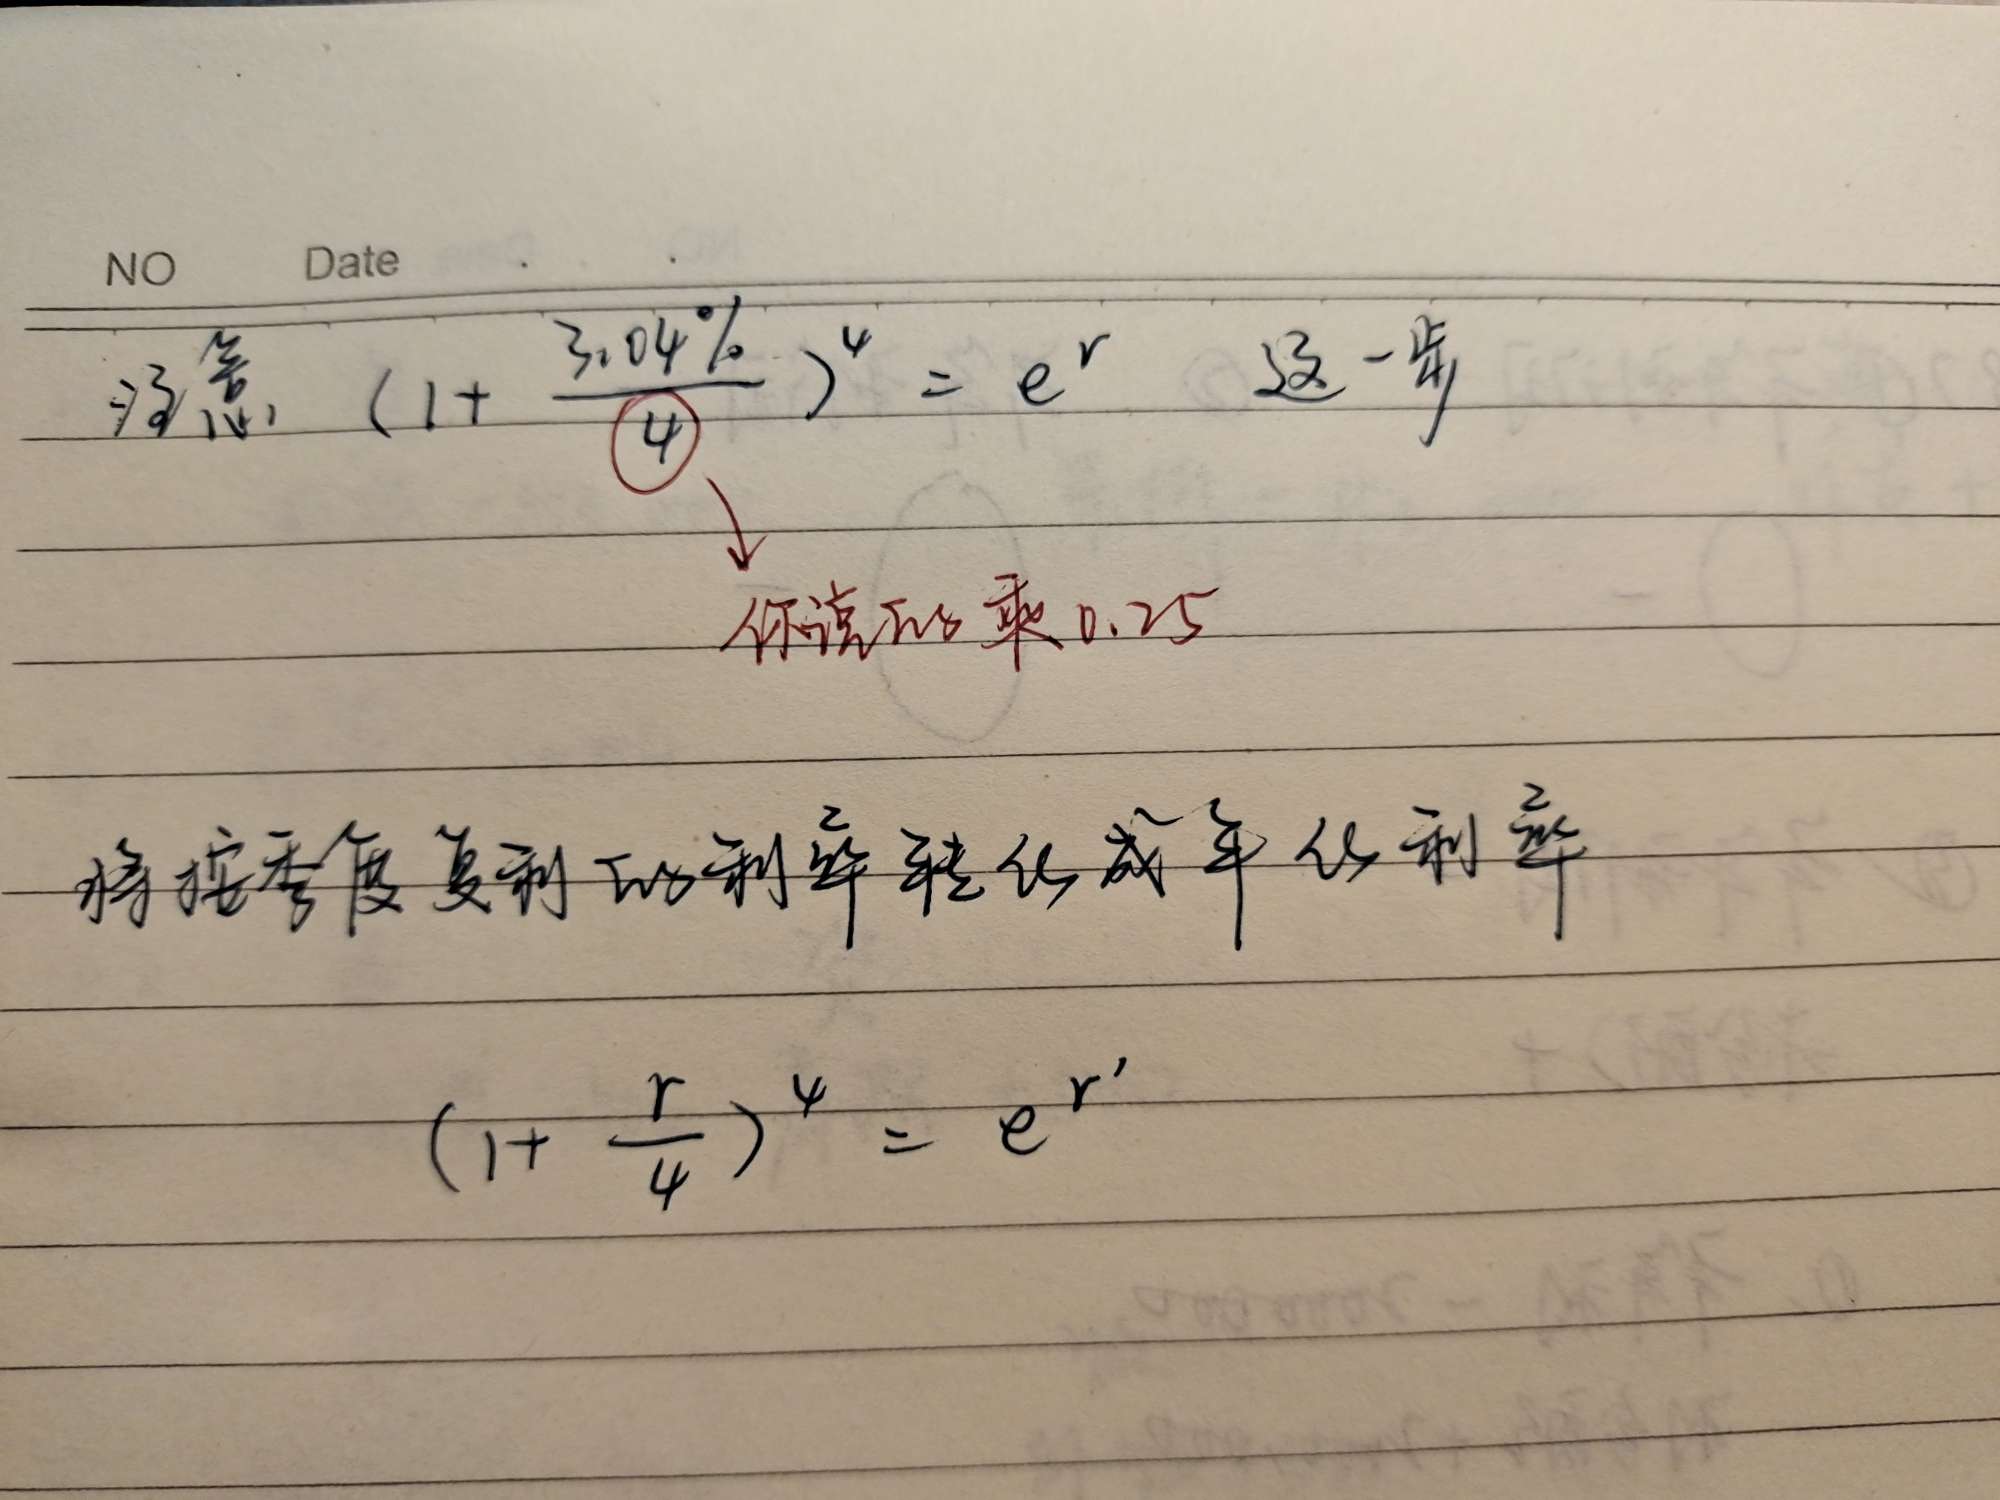 NO Date
注意 (1+ 3.04%/4)^4 = e^r 这一步
你说的乘0.25
将按季度复利的利率转化成年化利率
(1+ r/4)^4 = e^r'